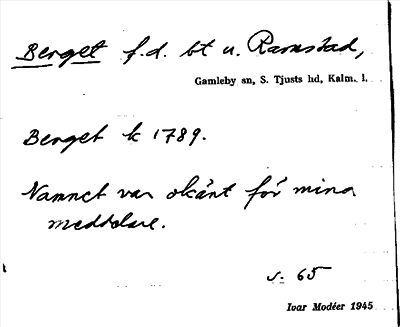 Berget f.d. bt u. Ramstad,
Gamleby sn, S. Tjusts hd, Kalm. l.
Berget k 1789.
Namnet var okänt för mina
meddelare.
s. 65
Ivar Modéer 1945